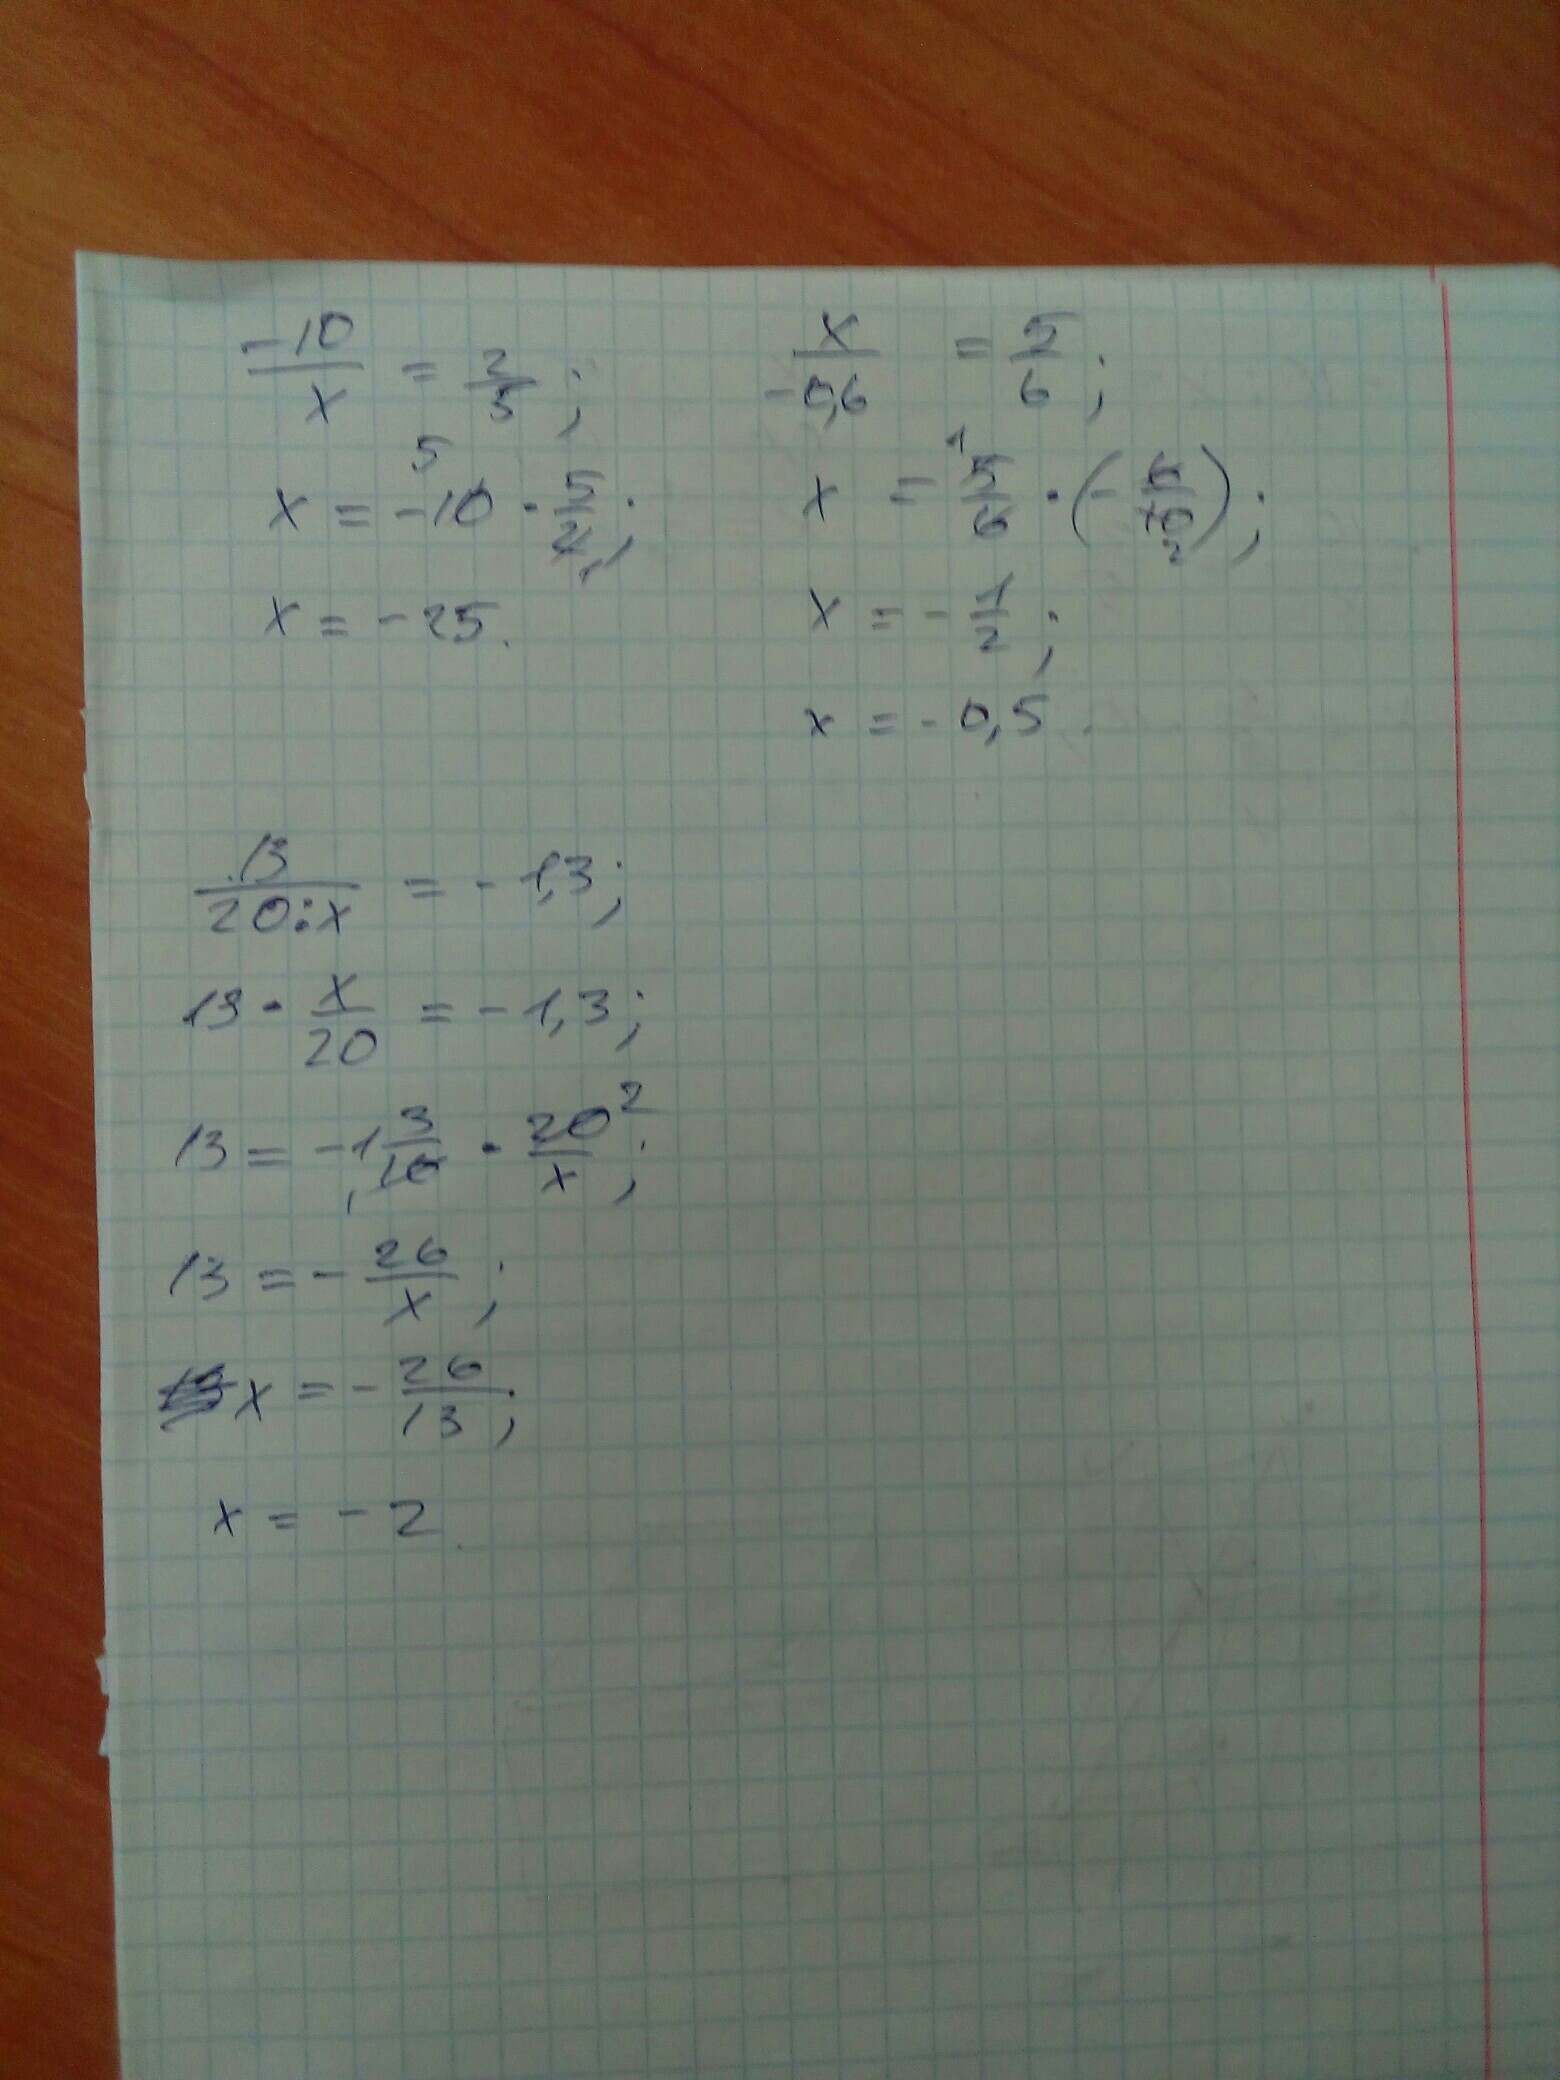 -10/x = 2/5;
x = -10 · 5/2;
x = -25.
x/-0,6 = 5/6;
x = 5/6 · (-6/10);
x = -1/2;
x = -0,5.
13/20:x = -1,3;
13 · x/20 = -1,3;
13 = -1 3/10 · 20/x;
13 = -26/x;
x = -26/13;
x = -2.